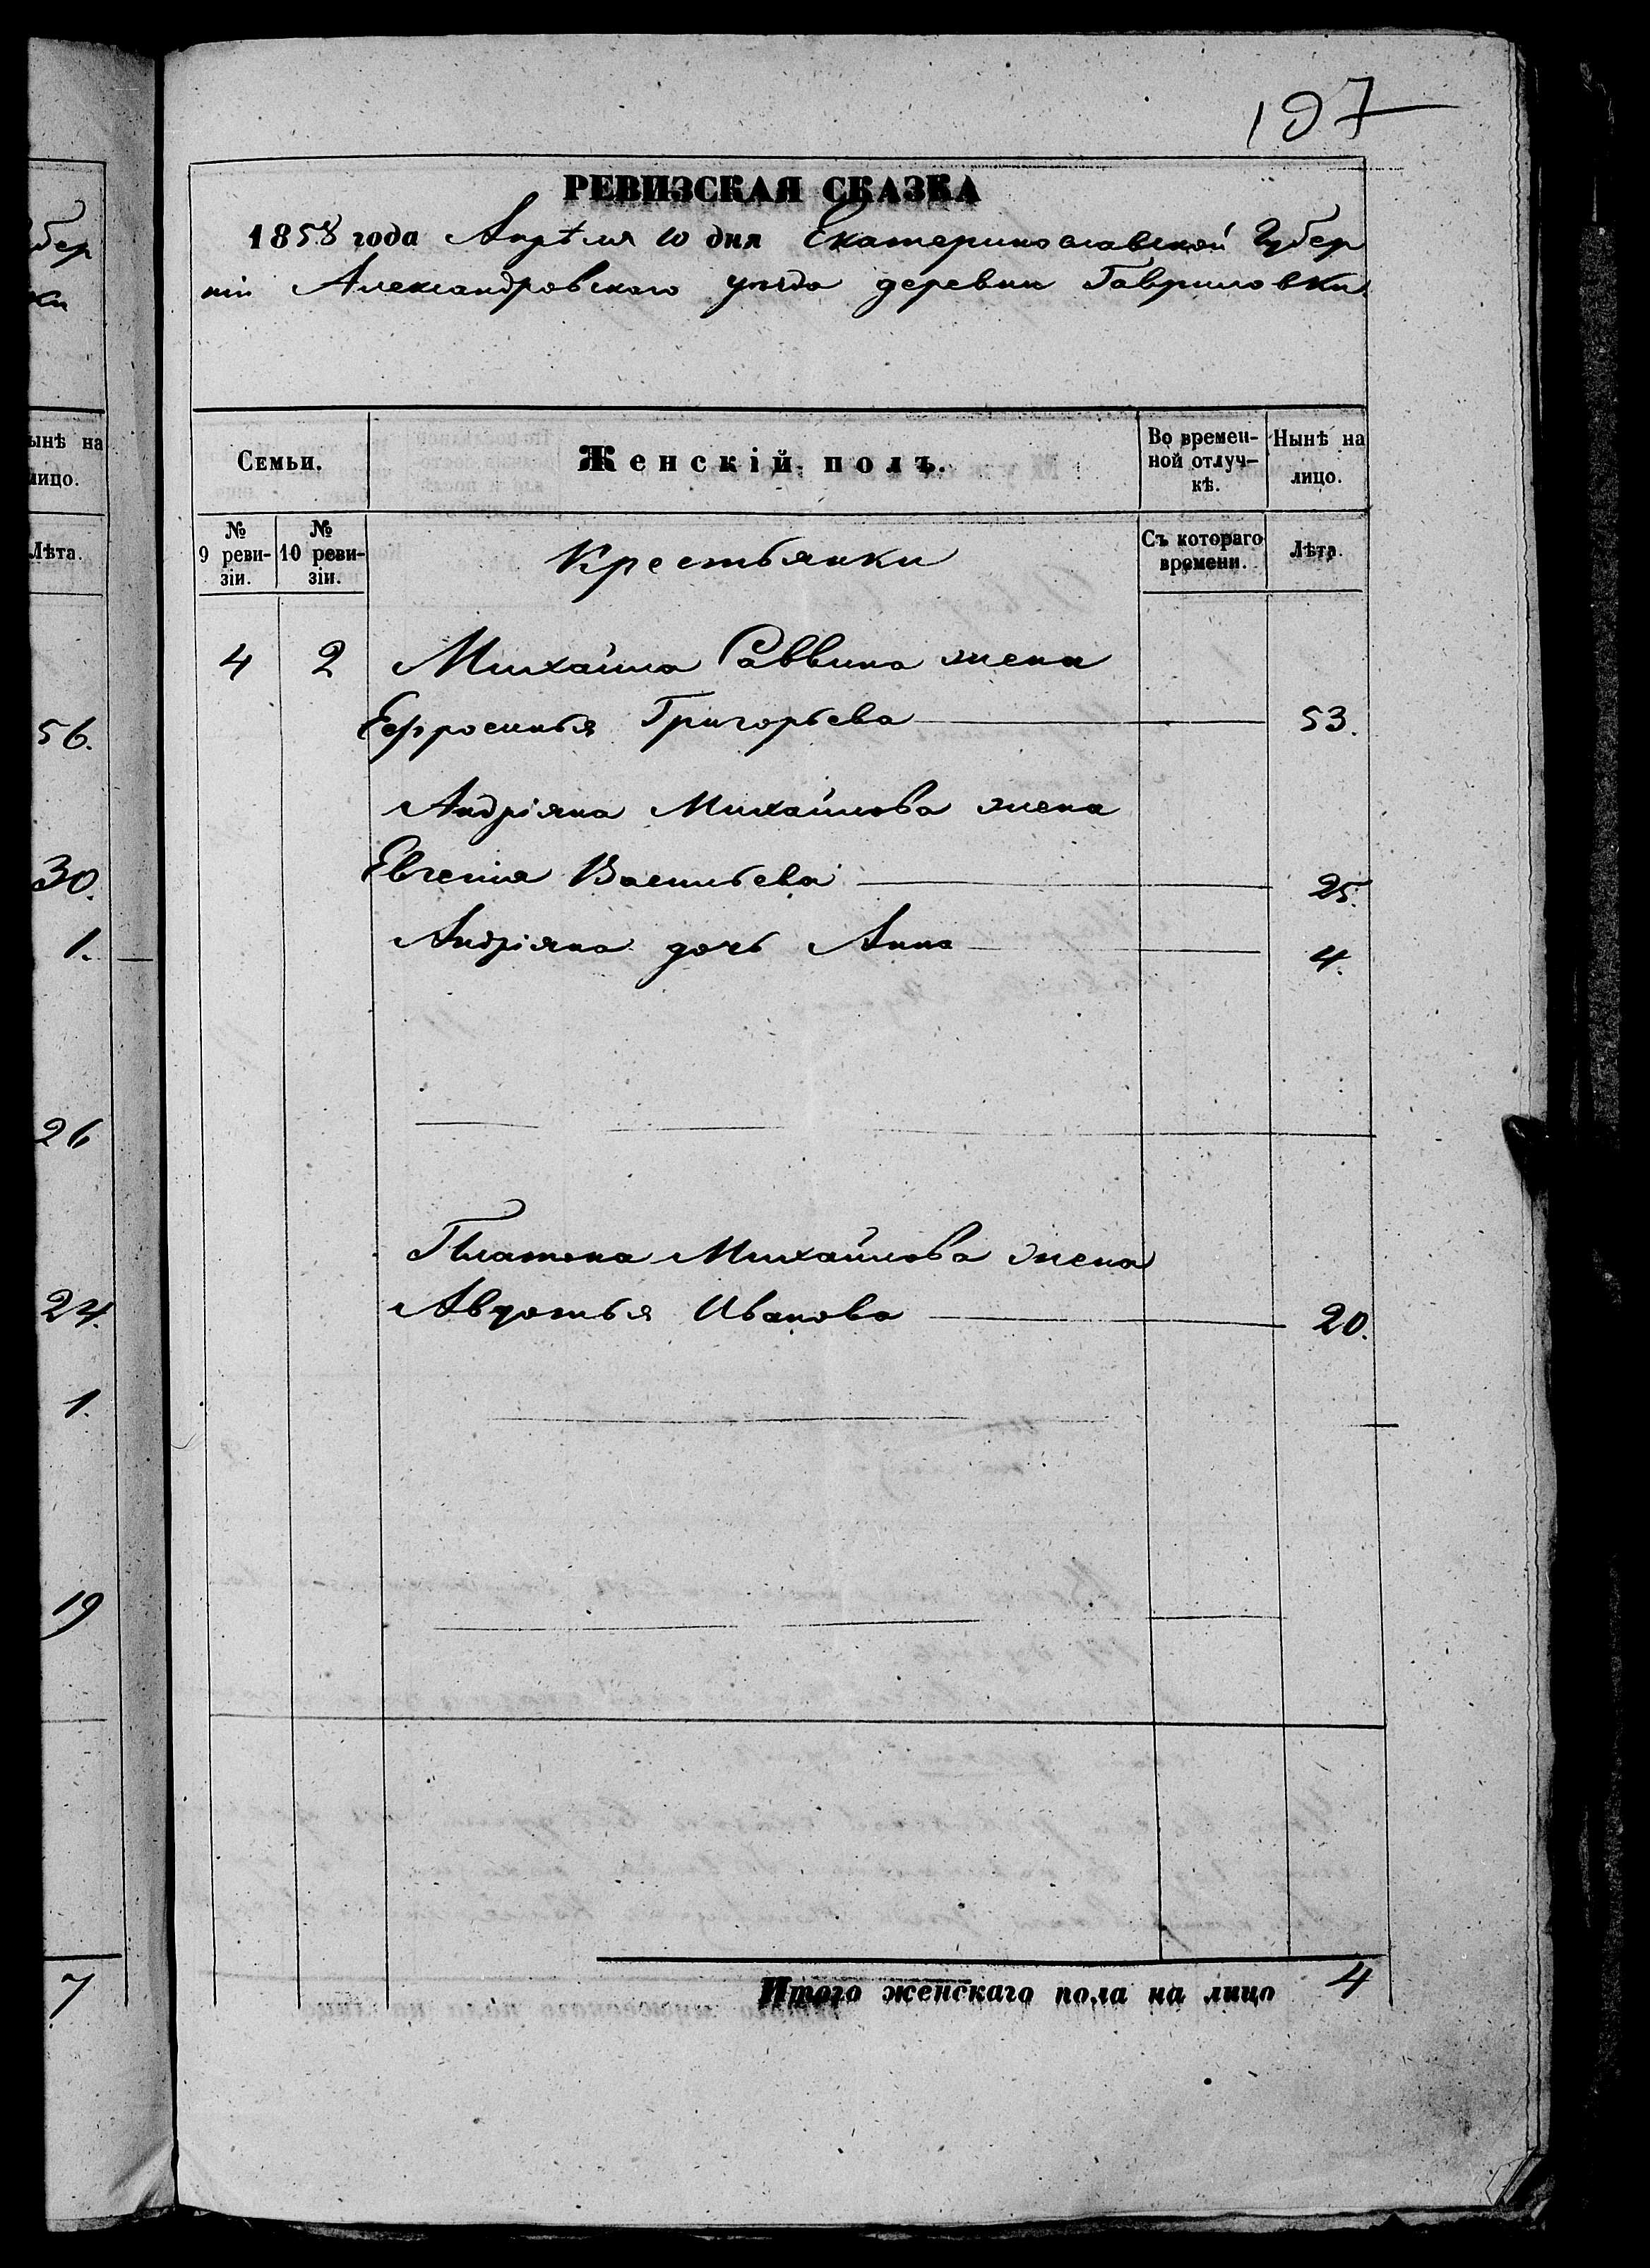 197
РЕВИЗСКАЯ СКАЗКА
1858 года Апрѣля 10 дня Екатеринославской Губер
ніи Александровского уѣзда деревни Гавриловки.
Семьи.
Женскій полъ.
Во времен-
ной отлуч-
кѣ.
Нынѣ на
лицо.
№
9 реви-
зіи.
№
10 реви-
зіи.
Крестьянки
Съ котораго
времени.
Лѣта.
4 2 Михайла Саввина жена
Ефросинья Григорьева 53.
Андріяна Михайлова жена
Евгенія Васильева 25.
Андріяна дочь Анна 4.
Платона Михайлова жена
Авдотья Иванова 20.
Итого женскаго пола на лицо 4
бер
ки
ынѣ на
лицо.
Лѣта.
56.
30.
1.
26
24.
1.
19
7